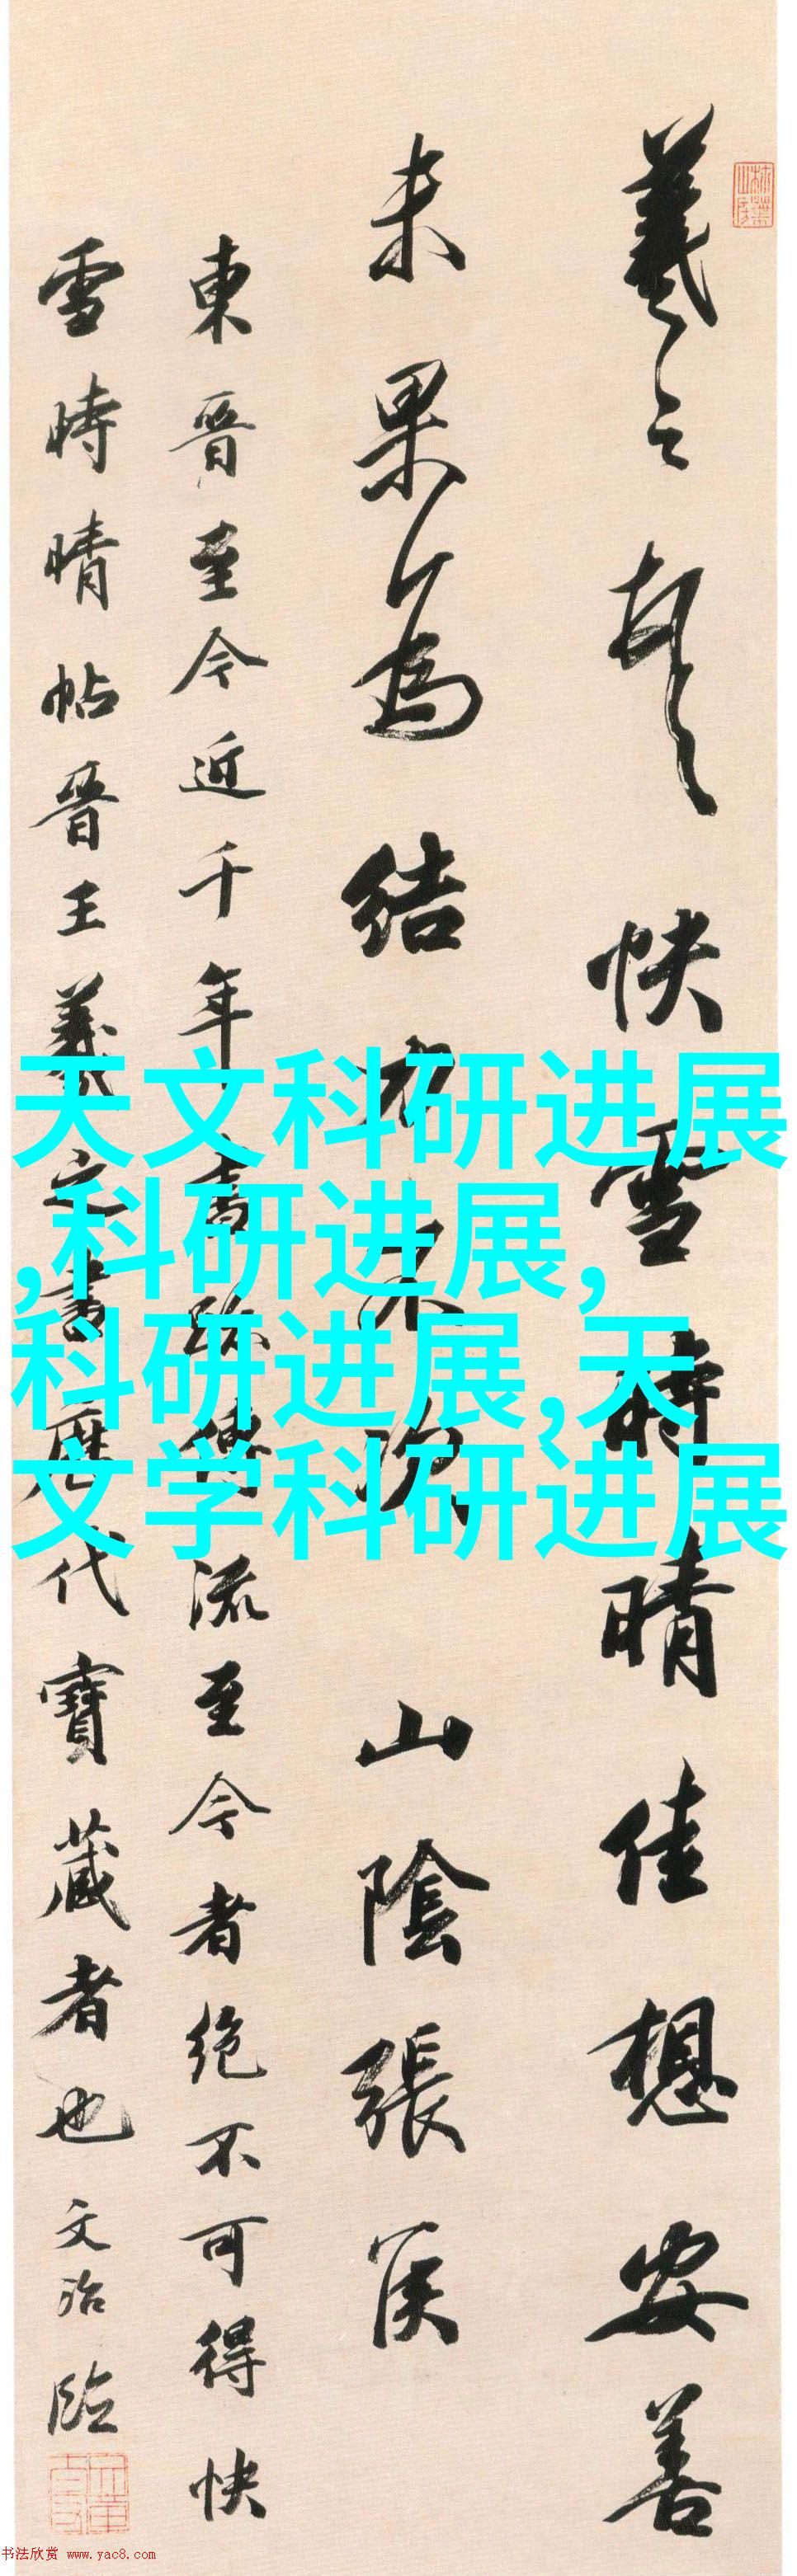 羲之頓首快雪時晴佳想安善
未果為結力不次 山陰張侯
東晉至今近千年書跡傳流至今者绝不可得快
雪時晴帖晉王羲之書歷代寶藏者也文治臨
天文科研进展
,科研进展,
科研进展,天
文学科研进展
书法欣赏 www.yac8.com